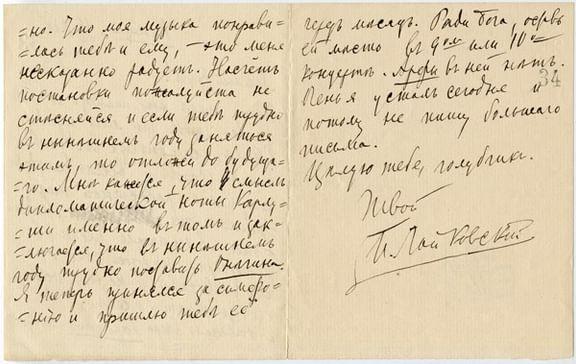 =но. Что моя музыка понрави=
=лась тебѣ и ему, – это меня
несказанно радуетъ. Насчетъ
постановки пожалуйста не
стѣсняйся и если тебѣ трудно
въ нынѣшнемъ году заняться
этимъ, то отложи до будуща=
=го. Мнѣ кажется, что смыслъ
дипломатической ноты Карлу=
=ши именно въ томъ и зак=
=лючается, что въ нынѣшнемъ
году трудно поставить Онѣгина.
Я теперь принялся за симфо=
=нію и пришлю тебѣ её
черезъ мѣсяцъ. Ради Бога, оставь
ей мѣсто въ 9омъ или 10омъ
концертѣ. Арфы въ ней нѣтъ.
34
усталъ сегодня и
потому не пишу большаго
письма.
Цѣлую тебя, голубчикъ.
Твой
П. Чайковскій